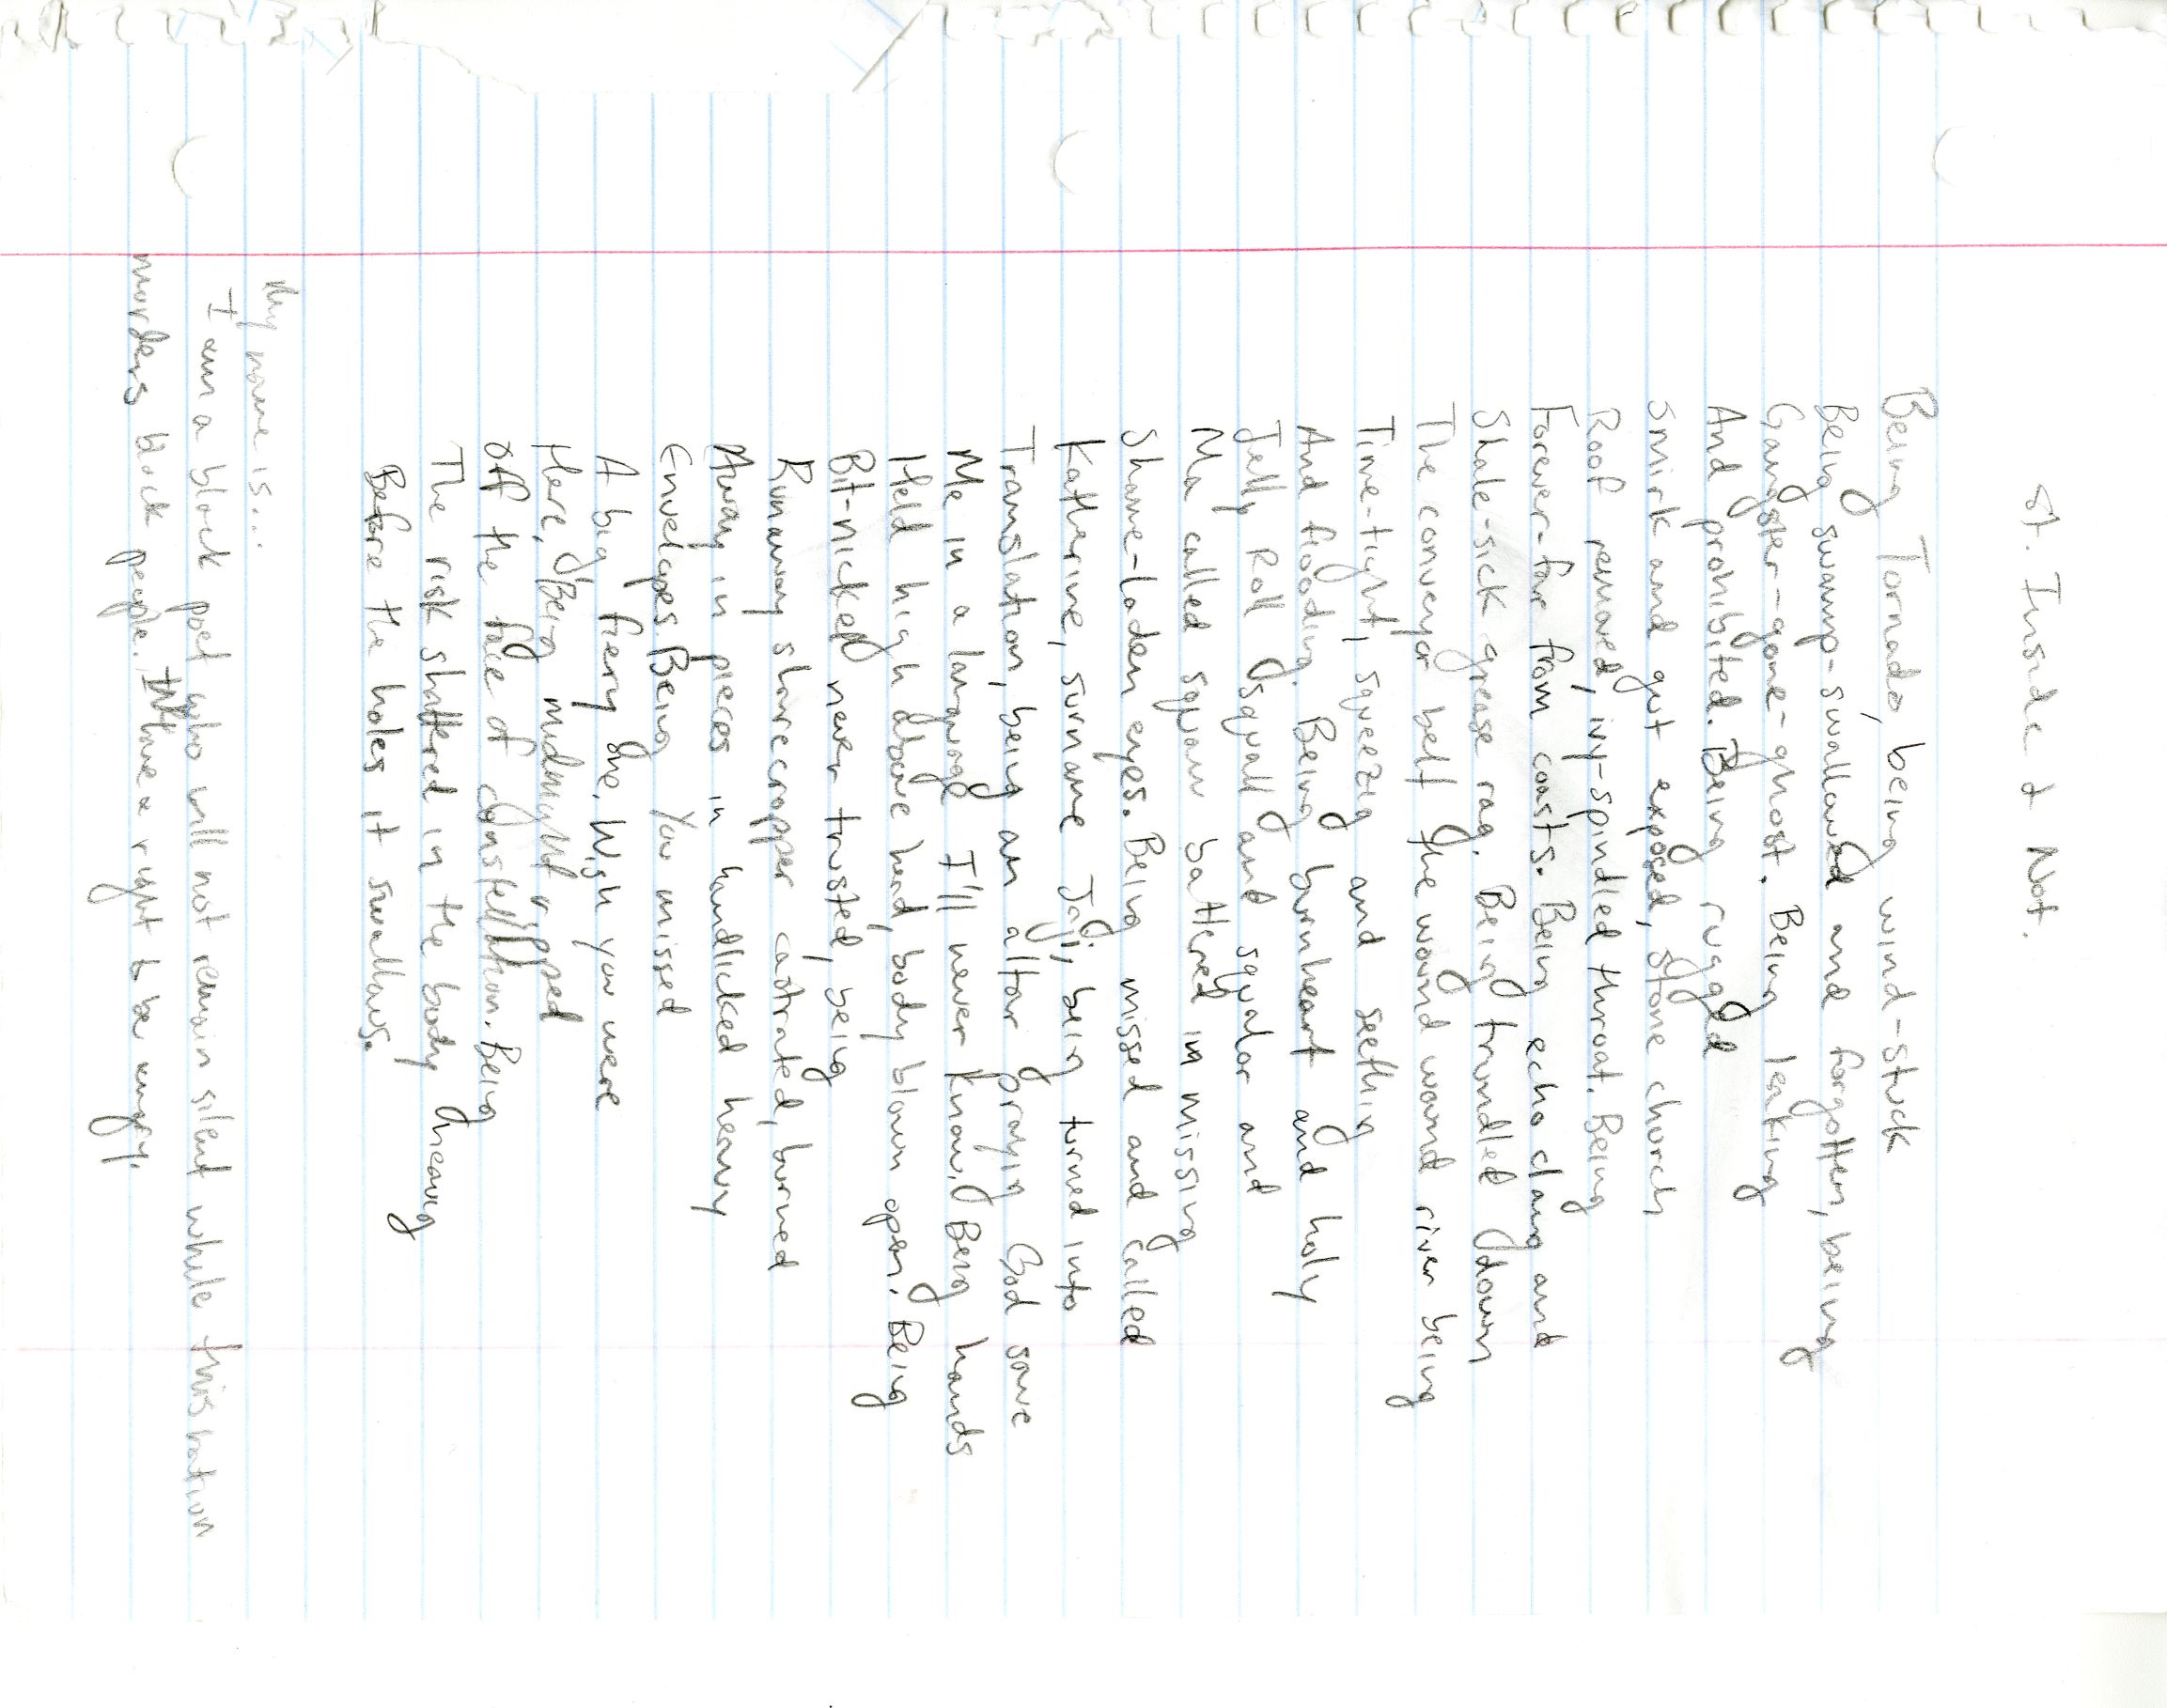 St. Inside & Not.
Being Tornado, being wind-stuck
Being swamp-swallowed and forgotten, being
Gangster-gone-ghost. Being leaking
And prohibited. Being rugged
Smirk and gut exposed, stone church
Roof removed, ivy-spindled throat. Being
Forever-far from coasts. Being echo clang and
Shale-sick grease rag. Being trundled down
The conveyor belt the wound wound wound river being
Time-tight, squeezing and seething
And flooding. Being burnheart and holy
Jelly Roll squall and squalor and
Ma called squaw battered in missing
Shame-laden eyes. Being missed and called
Katherine, surname Jaji, being turned into
Translation, being an altar praying God save
Me in a language I'll never know. Being hands
Held high above head, body blown open. Being
Bit-nickel never trusted, being
Runaway sharecropper castrated, burned
Away in pieces in handlicked heavy
Envelopes. Being you missed
A big fiery one, Wish you were
Here, Being midnight ripped
Off the face of constellation. Being
The risk shattered in the body heaving
Before the holes it swallows.
My name is...
I am a black poet who will not remain silent while this nation
murders black people. I have a right to be angry.